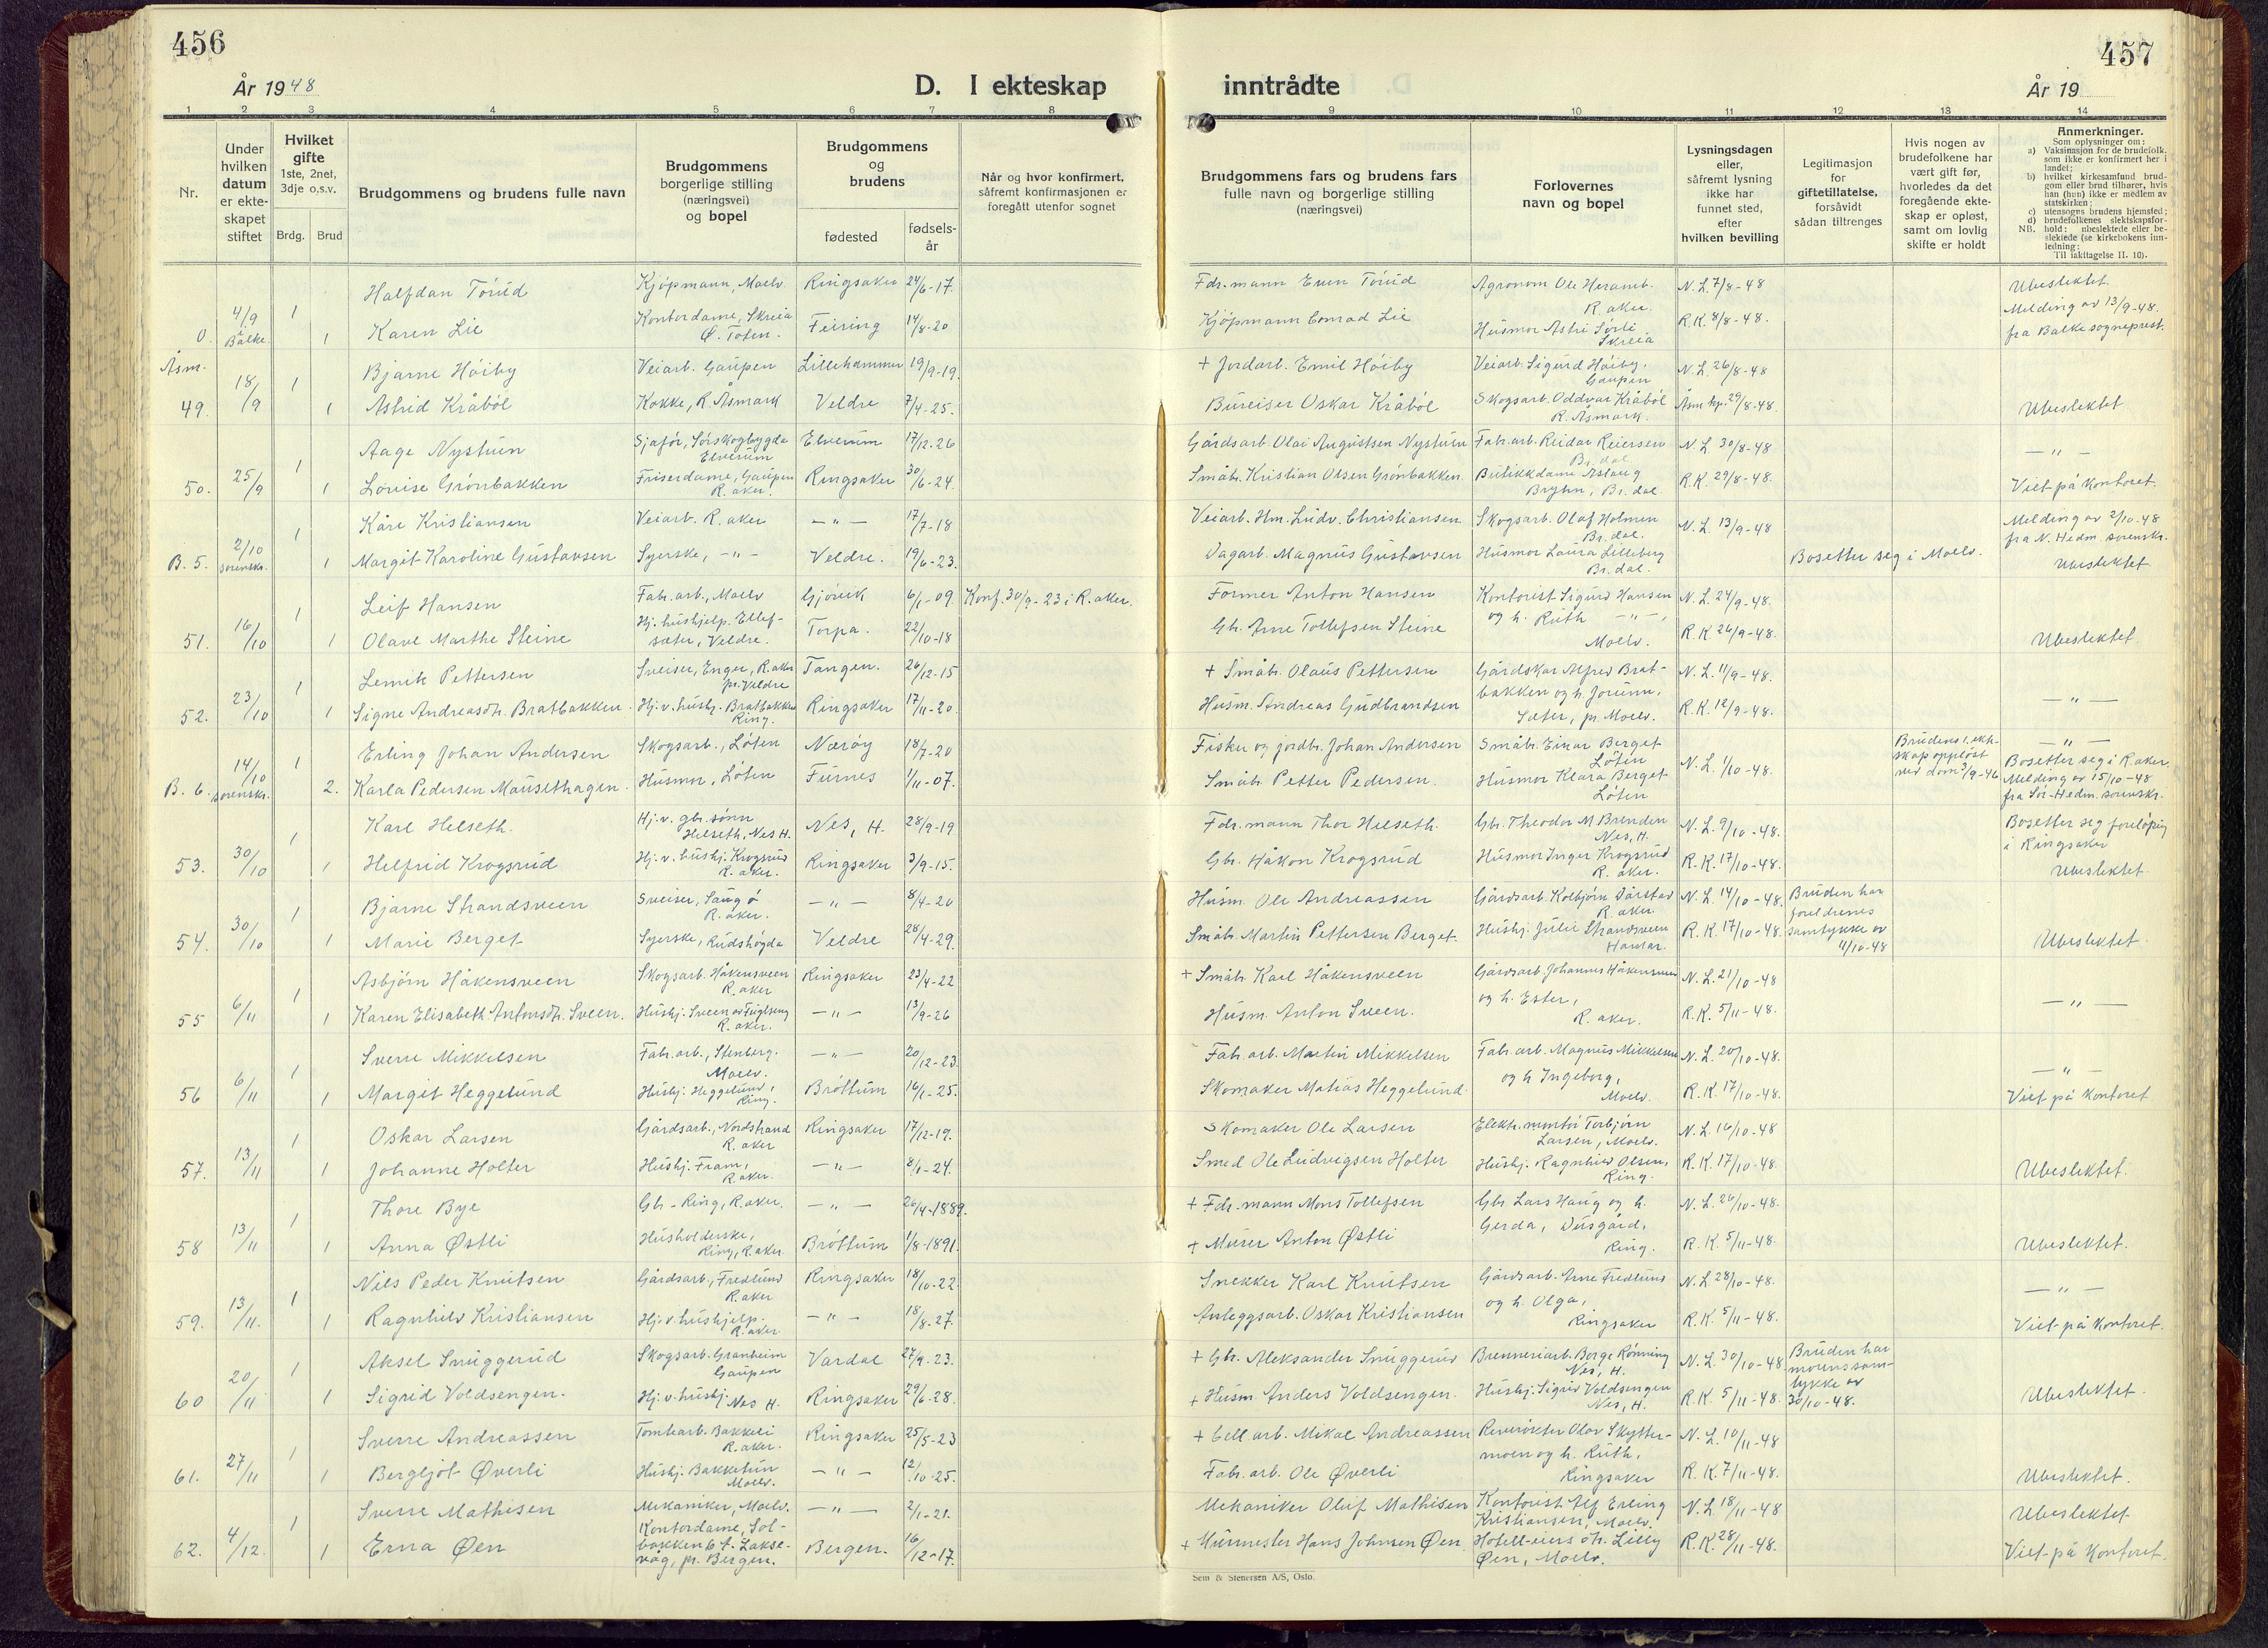 456
År 1948
D. I ekteskap
1 2 3 4 5 6 7 8
Nr.
Under hvilken datum er ekte- skapet stiftet
Hvilket gifte 1ste, 2net, 3dje o.s.v.
Brdg. Brud
Brudgommens og brudens fulle navn
Brudgommens borgerlige stilling (næringsvei) og bopel
Brudgommens og brudens
fødested
fødsels- år
Når og hvor konfirmert, såfremt konfirmasjonen er foregått utenfor sognet
Halfdan Torud Kjøpmann, Moelv. Ringsaker 24/6-17.
0. 4/9 i Balke. 1 1 Karen Lie Kontordame, Skreia Ø. Toten. Feiring 14/8-20
Åsm.
Bjarne Høiby Veiarb. Gaupen Lillehammer 19/9-19.
49. 18/9 1 1 Astrid Kråbøl Kokke, R. Åsmark Veldre 7/4-25.
Aage Nystuen Sjafør, Sørskogbygda Elverum Elverum 17/12-26
50. 25/9 1 1 Lovise Grønbakken Friserdame, Gaupen R. aker. Ringsaker 30/6-24.
Kåre Kristiansen Veiarb. R. aker — " — 17/7-18
B. 5. 2/10 sorenskr. 1 1 Margit Karoline Gustavsen Syerske, - " - Veldre. 19/6-23.
Leif Hansen Fabr. arb., Moelv Gjøvik 6/1-09. Konf. 30/9-23 i R. aker.
51. 16/10 1 1 Olave Marthe Steine Hj. hushjelp. Ellef- sæter, Veldre. Torpa. 22/10-18
Lemik Pettersen Sveiser, Enger, R. aker pr. Veldre Tangen. 26/12-15
52. 23/10 1 1 Signe Andreasdtr. Bratbakken. Hj. v. hushj. Bratbakken Ring. Ringsaker 17/11-20.
Erling Johan Andersen Skogsarb., Løten Nærøy 18/7-20
B. 6. 14/10 sorenskr. 1 2. Karla Pedersen Mausethagen. Husmor, Løten Furnes 1/11-07.
Karl Helseth. Hj. v. gbr. sønn Helseth, Nes H. Nes, H. 28/9-19
53. 30/10 1 1 Helfrid Krogsrud Hj. v. hushj. Krogsrud R. aker. Ringsaker 3/9-15.
Bjarne Strandsveen Sveiser, R. aker. — " — 8/4-20
54. 30/10 1 1 Marie Berget Syerske, Rudshøgda Veldre 28/4-29.
Asbjørn Håkensveen Skogsarb. Håkensveen R. aker Ringsaker 23/4-22
55 6/11 1 1 Karen Elisabeth Antonsdtr. Sveen. Hushj. Sveen av Fuglseng R. aker. — " — 13/9-26
Sverre Mikkelsen Fabr. arb., Stenberg. Moelv. — " — 20/12-23.
56 6/11 1 1 Margit Heggelund Hushj. Heggelund, Ring. Brøttum 16/1-25.
Oskar Larsen Gårdsarb., Nordstrand R. aker Ringsaker 17/12-19.
57. 13/11 1 1 Johanne Holter Hushj. Fram, R. aker. — " — 8/1-24.
Thore Bye Gbr. - Ring, R. aker. — " — 26/4-1889.
58 13/11 1 1 Anna Østli Husholderske, Ring, R. aker. Brøttum 1/8-1891.
Nils Peder Knutsen Gårdsarb., Fredlund R. aker Ringsaker 18/10-22.
59. 13/11. 1 1 Ragnhild Kristiansen Hj. v. hushjelp. R. aker — " — 18/8-27.
Aksel Snuggerud Skogsarb. Granheim Gaupen Vardal 27/9-23.
60 20/11 1 1 Sigrid Voldsengen. Hj. v. hushj. Nes H. Ringsaker 29/6-28.
Sverre Andreassen Tomtearb. Bakkeli R. aker. Ringsaker 25/5-23
61. 27/11 1 1 Bergljot Øverli Hushj. Bakketun Moelv. — " — 12/10-25.
Sverre Mathisen Mekaniker, Moelv. — " — 2/1-21.
62. 4/12. 1 1 Erna Øen Kontordame, Sol- bakken 6 f. Lakse- våg, pr. Bergen. Bergen. 16/12-17.
457
inntrådte
År 19
9 10 11 12 13 14
Brudgommens fars og brudens fars fulle navn og borgerlige stilling (næringsvei)
Forlovernes navn og bopel
Lysningsdagen eller, såfremt lysning ikke har funnet sted, efter hvilken bevilling
Legitimasjon for giftetillatelse, forsåvidt sådan tiltrenges
Hvis nogen av brudefolkene har vært gift før, hvorledes da det foregående ekte- skap er opløst, samt om lovlig skifte er holdt
Anmerkninger.
Som oplysninger om:
a) Vaksinasjon for de brudefolk, som ikke er konfirmert her i landet;
b) hvilket kirkesamfund brud- gom eller brud tilhører, hvis han (hun) ikke er medlem av statskirken;
c) utensogns brudens hjemsted;
d) brudefolkenes slektskapsfor- hold: ubeslektede eller be- slektede (se kirkebokens inn- ledning;
NB.
Til iakttagelse II. 10).
Fdr. mann Even Torud Agronom Ole Heramb. R. aker. N. L. 7/8-48 Ubeslektet.
Kjøpmann Conrad Lie Husmor Astri Sørli Skreia R. K. 8/8-48. Melding av 13/9-48. fra Balke sogneprest.
+ Jordarb. Emil Høiby Veiarb. Sigurd Høiby, Gaupen N. L. 26/8-48
Bureiser Oskar Kråbøl Skogsarb. Oddvar Kråbøl R. Åsmark. Åsm. kp. 29/8-48. Ubeslektet
Gårdsarb. Olai Augustsen Nystuen Fabr. arb. Reidar Reiersen Br. dal N. L. 30/8-48 — " —
Småbr. Kristian Olsen Grønbakken Butikkdame Aslaug Bryhn, Br. dal. R. K. 29/8-48. Viet på kontoret.
Veiarb. Hm. Ludv. Christiansen Skogsarb. Olaf Holmen Br. dal. N. L. 13/9-48 Melding av 2/10-48 fra N. Hedm. sorenskr.
Dagarb. Magnus Gustavsen Husmor Laura Lilleberg Br. dal. Bosetter seg i Moelv. Ubeslektet
Former Anton Hansen Kontorist Sigurd Hansen N. L. 24/9-48.
Gbr. Arne Tollefsen Steine og h. Ruth - " -, Moelv. R. K. 26/9-48. Ubeslektet
+ Småbr. Olaus Pettersen Gårdskar Alfred Brat- N. L. 11/9-48.
Husm. Andreas Gudbrandsen bakken og h. Jorunn, Sæter, pr. Moelv. R. K. 12/9-48. — " —
Fisker og jordbr. Johan Andersen Småbr. Einar Berget Løten N. L. 1/10-48. Brudens 1. ekte- skap oppløst ved dom 3/9-46 — " —
Småbr. Petter Pedersen. Husmor Klara Berget Løten Bosetter seg i R. aker. Melding av 15/10-48 fra Sør-Hedm. sorenskr.
Fdr. mann Thor Helseth. Gbr. Theodor M. Brenden Nes, H. N. L. 9/10-48. Bosetter seg foreløpig i Ringsaker
Gbr. Håkon Krogsrud Husmor Inger Krogsrud R. aker. R. K. 17/10-48. Ubeslektet.
Husm. Ole Andreassen Gårdsarb. Kolbjørn R. aker. N. L. 14/10-48. Bruden har foreldrenes samtykke av 11/10-48
Småbr. Martin Pettersen Berget. Hushj. Julie Strandsveen Hamar. R. K. 17/10-48. Ubeslektet.
+ Småbr. Karl Håkensveen Gårdsarb. Johannes Håkensveen N. L. 21/10-48
Husm. Anton Sveen. og h. Ester, R. aker. R. K. 5/11-48. — " —
Fabr. arb. Martin Mikkelsen Fabr. arb. Magnus Mikkelsen N. L. 20/10-48. — " —
Skomaker Matias Heggelund. og h Ingeborg, Moelv. R. K. 17/10-48. Viet på kontoret
Skomaker Ole Larsen Elektr. montør Torbjørn Larsen, Moelv. N. L. 16/10-48
Smed Ole Ludvigsen Holter Hushj. Ragnhild Olsen, Ring. R. K. 17/10-48. Ubeslektet.
+ Fdr. mann Mons Tollefsen Gbr. Lars Haug og h. N. L. 26/10-48.
+ Murer Anton Østli Gerda, Dusgård, Ring. R. K. 5/11-48. Ubeslektet.
Snekker Karl Knutsen Gårdsarb. Arne Fredlund N. L. 28/10-48. — " —
Anleggsarb. Oskar Kristiansen og h. Olga, Ringsaker R. K. 5/11-48. Viet på kontoret.
+ Gbr. Aleksander Snuggerud Brenneriarb. Borge Rønning Nes, H. N. L. 30/10-48 Bruden har morens sam- tykke av 30/10-48.
+ Husm. Anders Voldsengen. Hushj. Sigurd Voldsengen Nes, H. R. K. 5/11-48. Ubeslektet.
+ Cell. arb. Mikal Andreassen Reverøkter Olav Skytter- N. L. 10/11-48
Fabr. arb. Ole Øverli moen og h. Ruth, Ringsaker R. K. 7/11-48. Ubeslektet.
Mekaniker Oluf Mathisen Kontorist Alf Erling Kristiansen, Moelv. N. L. 18/11-48 Ubeslektet
+ Murmester Hans Johnsen Øen. Hotell-eiers dtr. Lilly Øen, Moelv. R. K. 28/11-48. Viet på kontoret.
Sem & Stenersen A/S, Oslo.